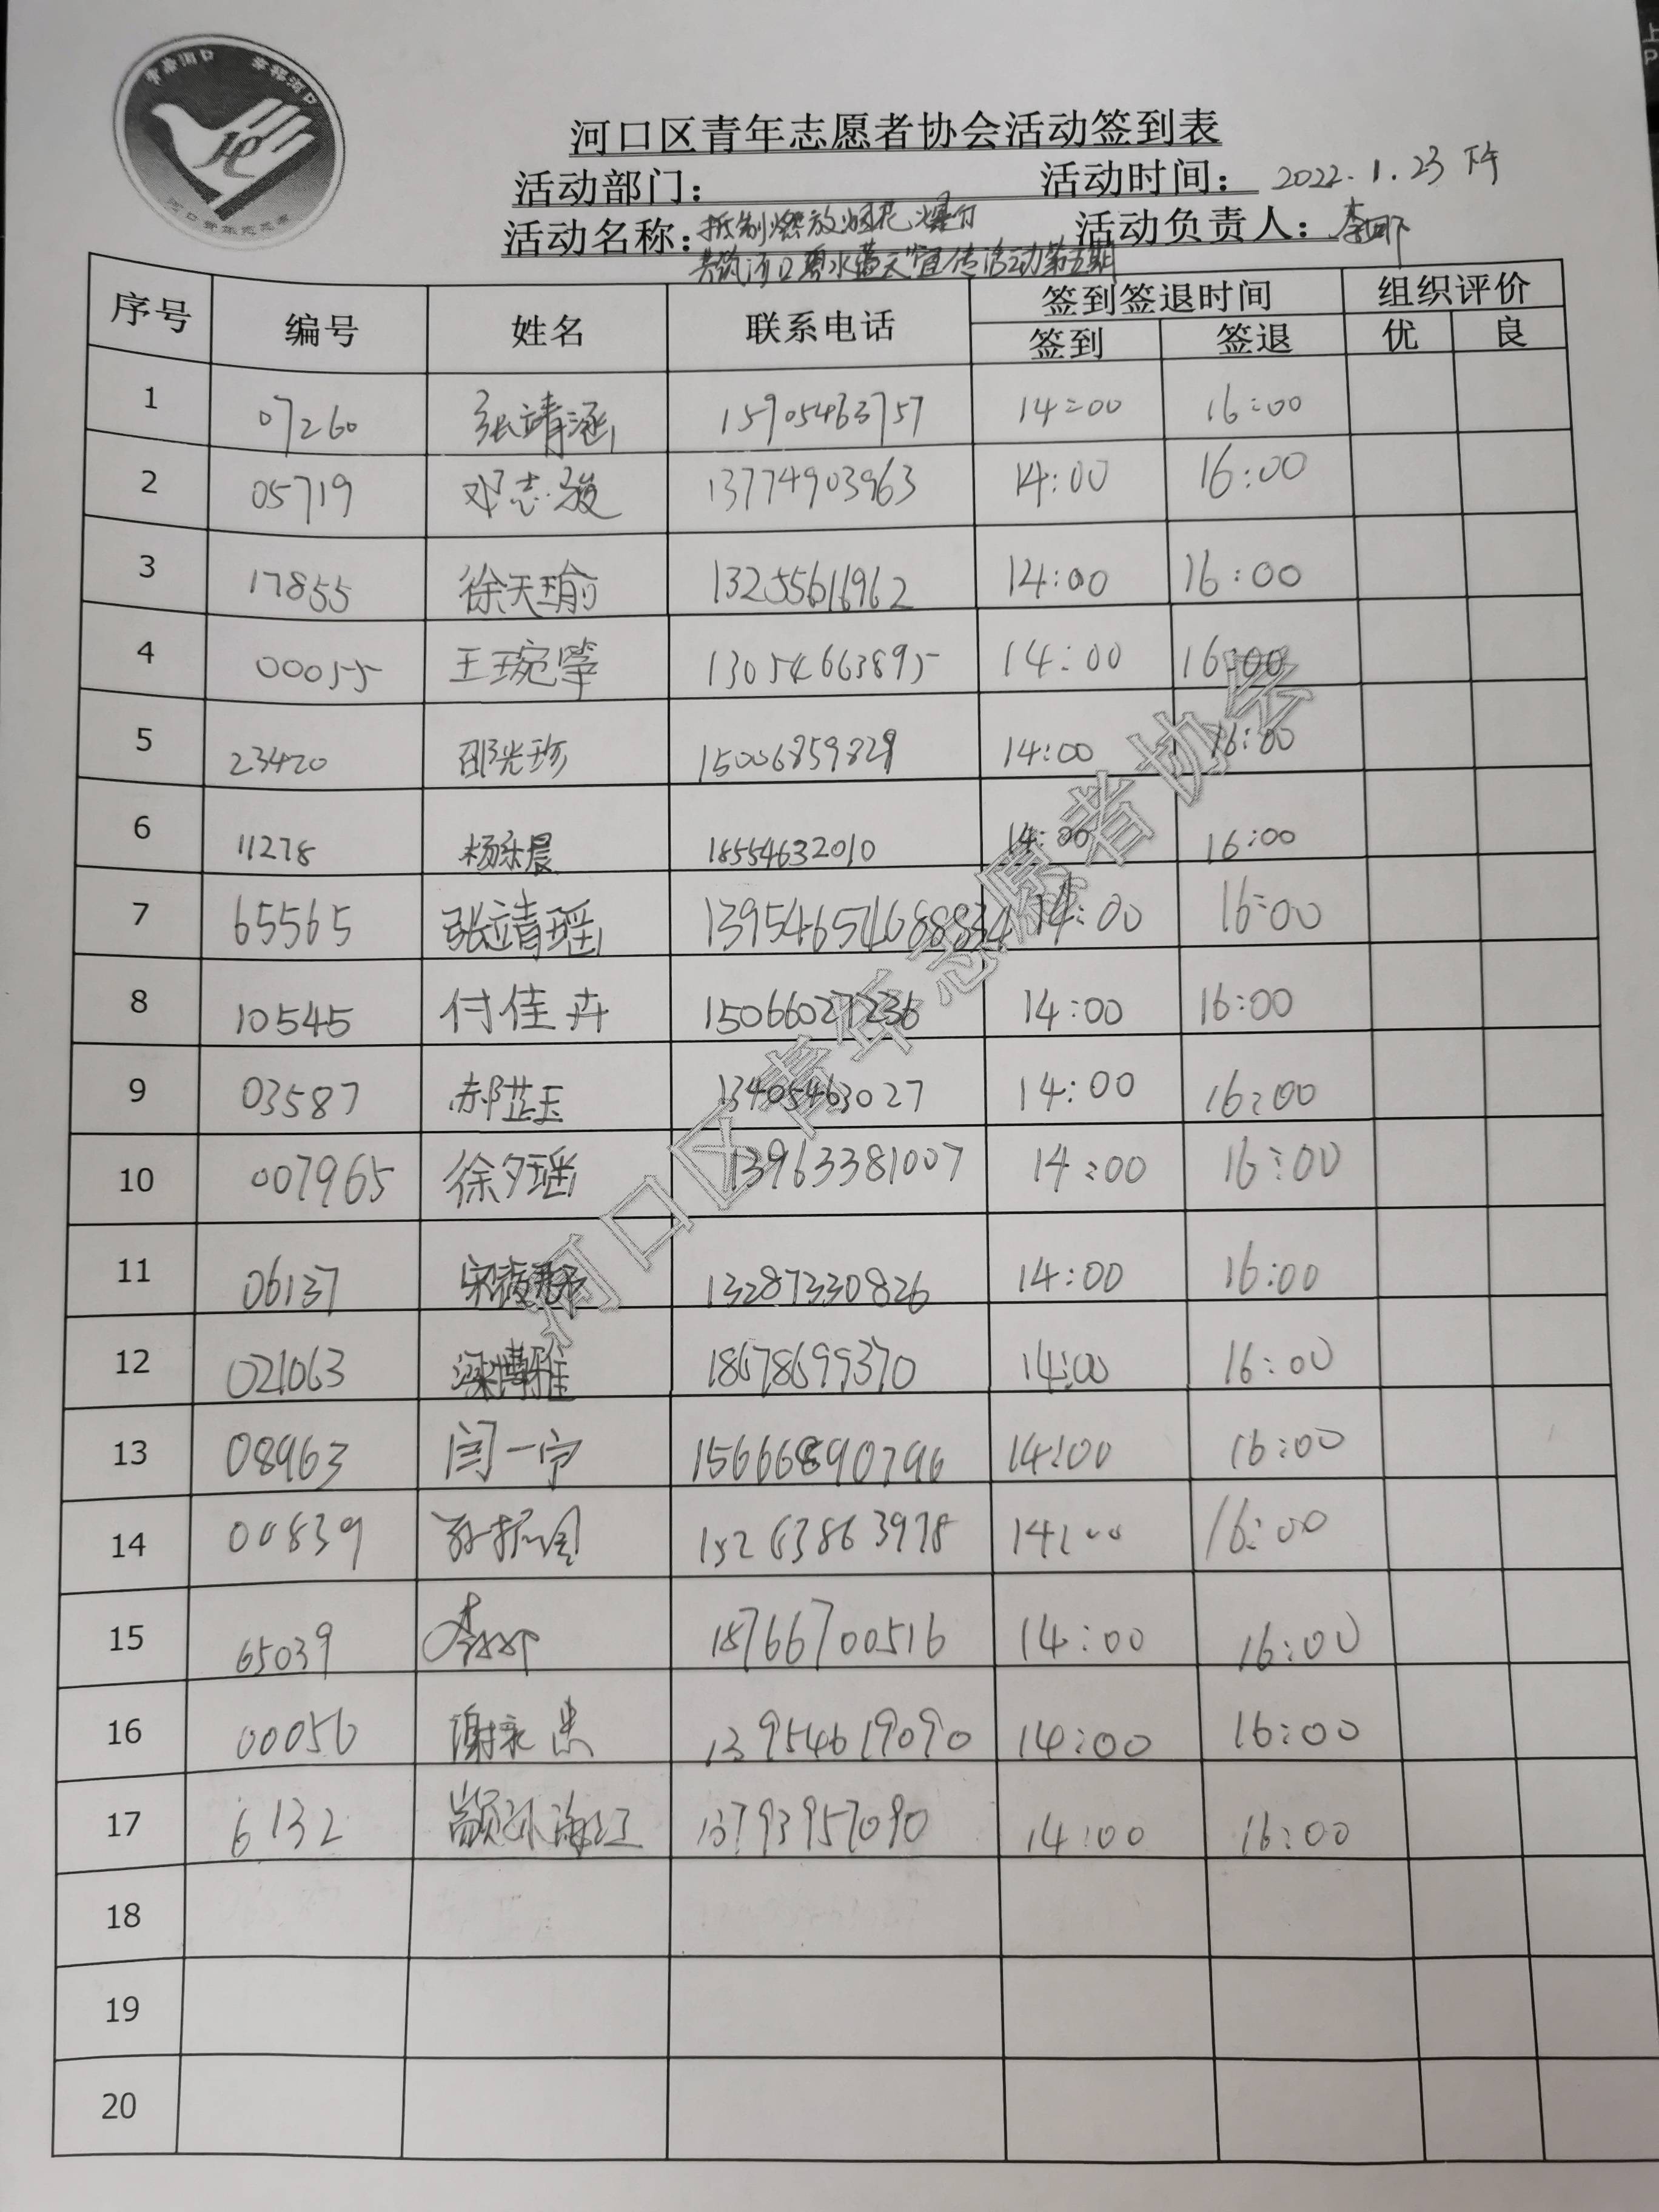 河口区青年志愿者协会活动签到表
活动部门： 活动时间： 2022.1.23 下午
活动名称： 抵制燃放烟花爆竹 活动负责人： 李
共筑河口碧水蓝天"宣传活动第五期
序号 编号 姓名 联系电话 签到签退时间 组织评价
签到 签退 优 良
1 07260 张靖涵 15905463757 14:00 16:00
2 05719 邓志骏 13774903963 14:00 16:00
3 17855 徐天瑜 13255616962 14:00 16:00
4 00055 王琬擎 13054663895 14:00 16:00
5 23420 邵光珍 15006859829 14:00 16:00
6 11278 杨乐晨 18554632010 14:00 16:00
7 65565 张靖瑶 14:00 16:00
8 10545 付佳卉 15066027236 14:00 16:00
9 03587 郝芷玉 13405463027 14:00 16:00
10 007965 徐夕瑶 13963381007 14:00 16:00
11 06137 13287330826 14:00 16:00
12 021063 梁博雅 18678699370 14:00 16:00
13 08963 闫一宁 15666890796 14:00 16:00
14 00839 15263863978 14:00 16:00
15 65039 李 18766700516 14:00 16:00
16 00056 谢永忠 13954619090 14:00 16:00
17 6132 颛孙海江 13793957090 14:00 16:00
18
19
20
河口区青年志愿者协会